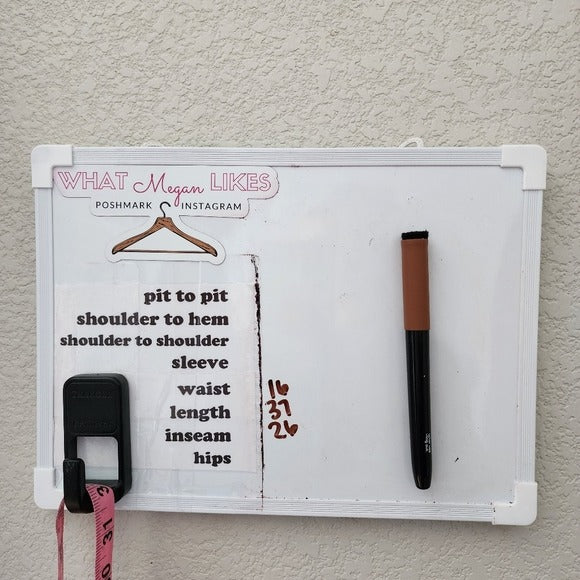 WHAT Megan LIKES
POSHMARK INSTAGRAM
pit to pit
shoulder to hem
shoulder to shoulder
sleeve
waist 16
length 37
inseam 26
hips
31